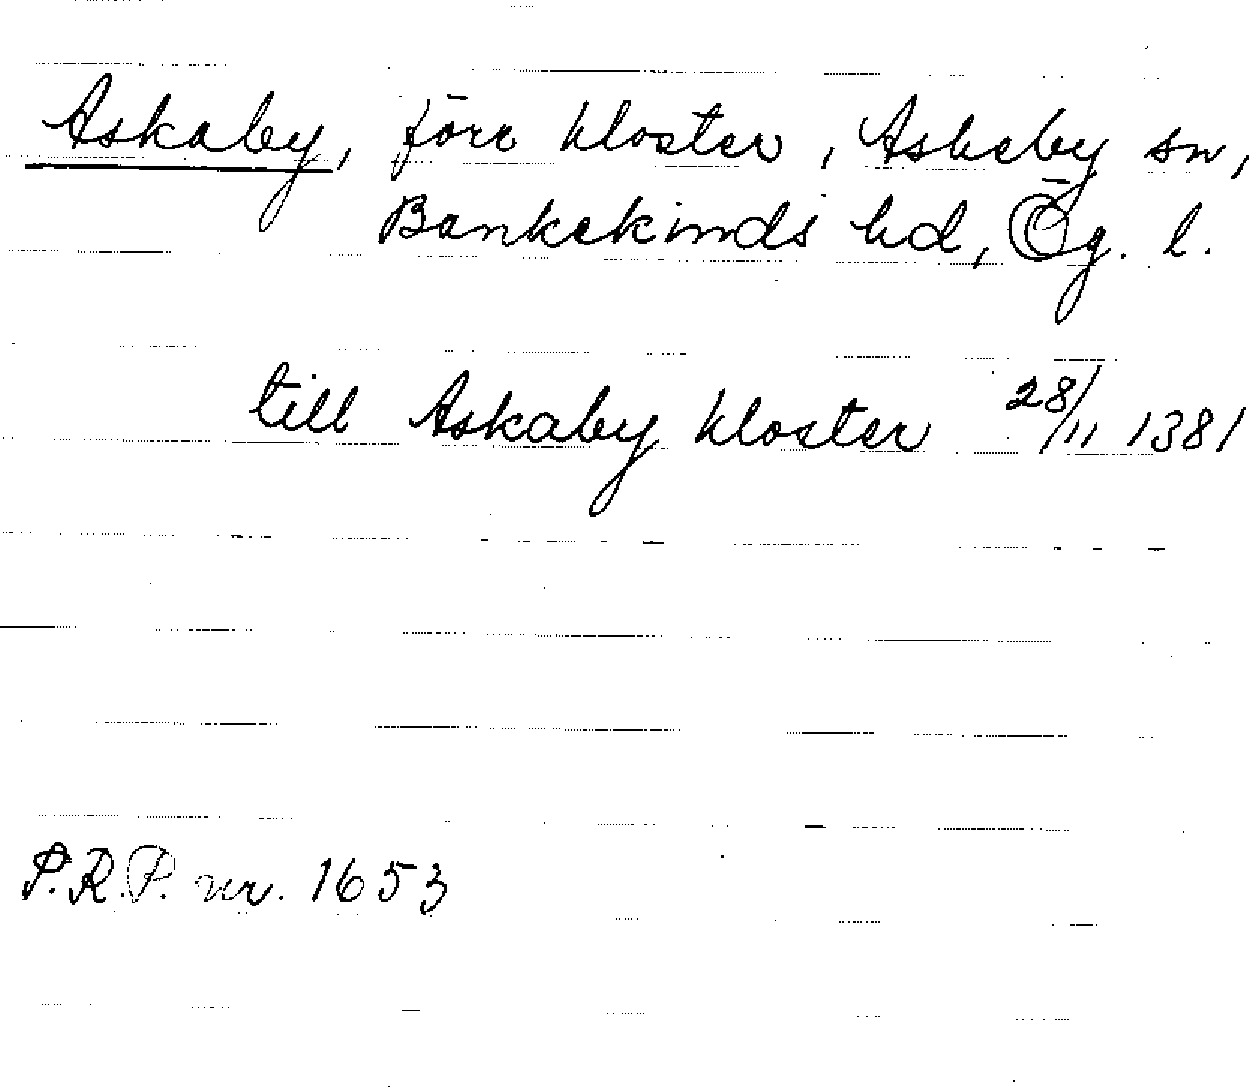 Askaby, förr kloster, Askeby sn,
Bankekinds hd, Ög. l.
till Askaby kloster 28/11 1381
P.R.P. nr. 1653